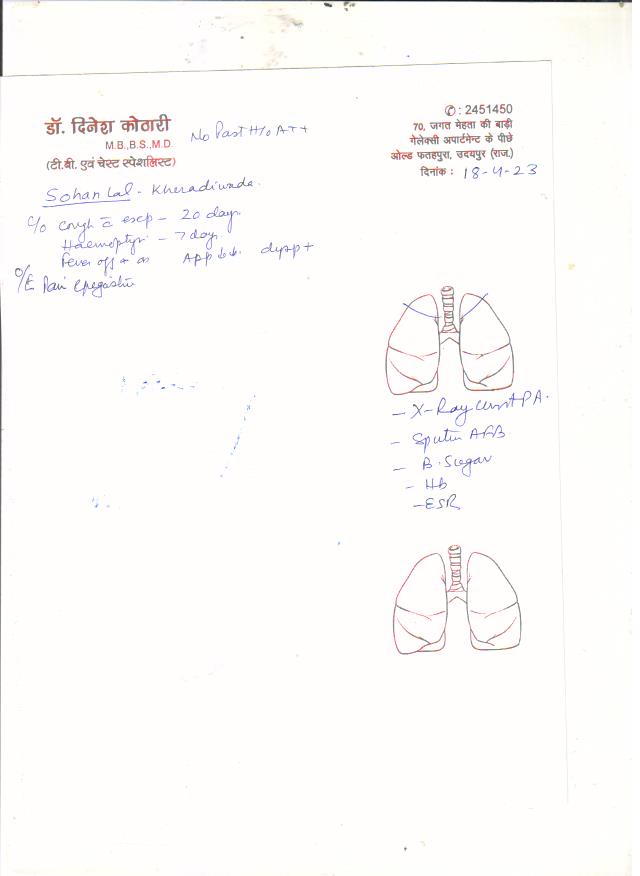 डॉ. दिनेश कोठारी
M.B.,B.S.,M.D.
(टी.बी. एवं चेस्ट स्पेशलिस्ट)
No Past H/o ATT
✆: 2451450
70, जगत मेहता की बाड़ी
गेलेक्सी अपार्टमेन्ट के पीछे
ओल्ड फतहपुरा, उदयपुर (राज.)
दिनांक : 18-4-23
Sohan Lal - Kheradiwada.
C/o Cough c̄ exp - 20 days
Haemoptysis - 7 days
Fever off & on App ↓↓ dysp +
O/E Pain epigastric
- X-Ray Chest PA.
- Sputum AFB
- B. Sugar
- Hb
- ESR